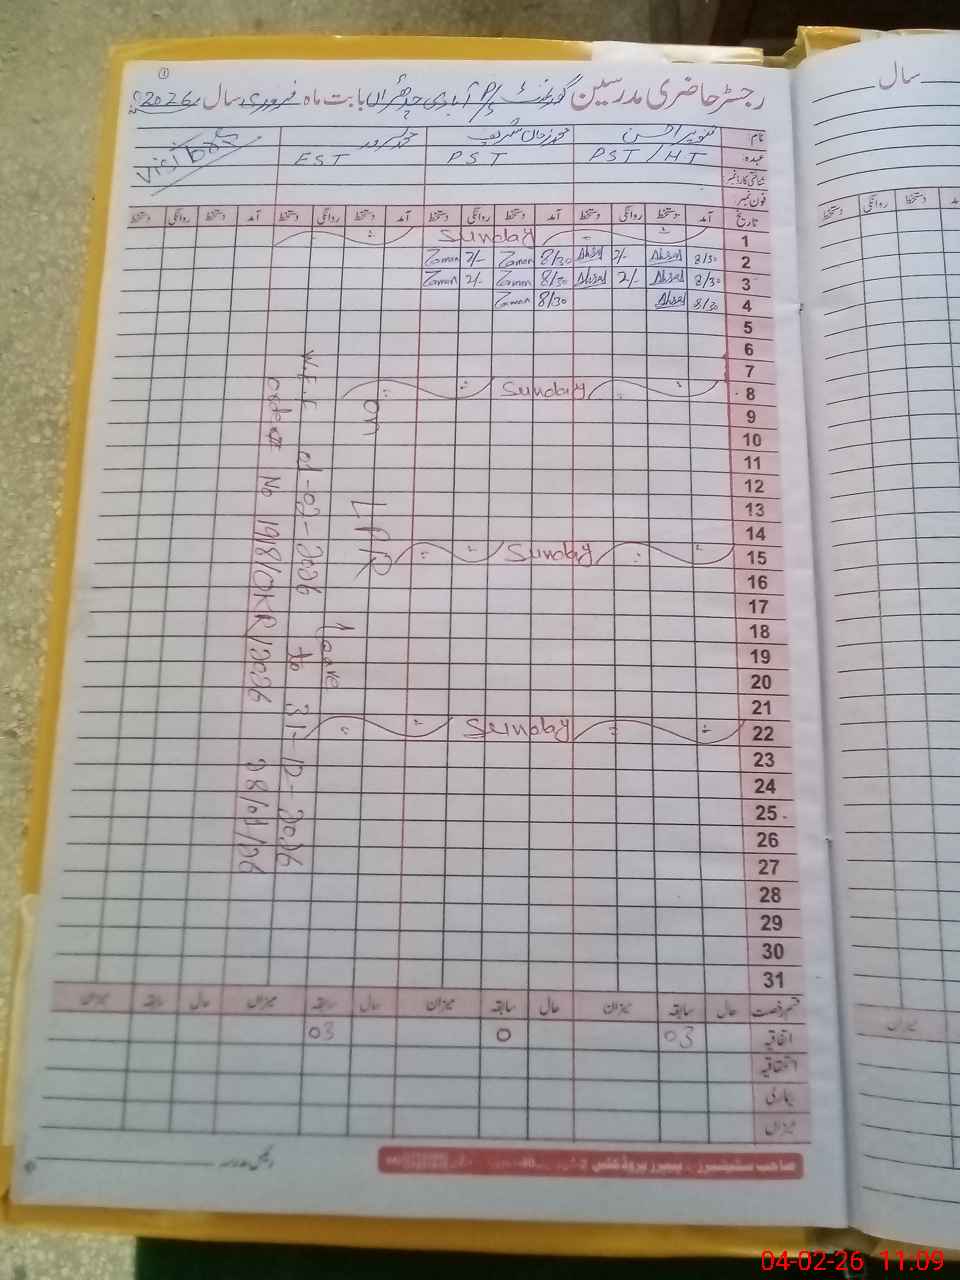 رجسٹر حاضری مدرسین گورنمنٹ P/S آبادی بابت ماہ فروری سال 2026ء
نام تنویر احسن محمد زمان شریف محمد سرور
عہدہ PST/HT PST EST
شناختی کارڈ نمبر
فون نمبر
تاریخ آمد دستخط روانگی دستخط آمد دستخط روانگی دستخط آمد دستخط روانگی دستخط آمد دستخط روانگی دستخط
1 Sunday
2 8/30 Ahsan 2/- Ahsan 8/30 Zaman 2/- Zaman
3 8/30 Ahsan 2/- Ahsan 8/30 Zaman 2/- Zaman
4 8/30 Ahsan 8/30 Zaman
5
6
7
8 Sunday
9
10
11
12
13
14
15 Sunday
16
17
18
19
20
21
22 Sunday
23
24
25
26
27
28
29
30
31
on LPR Leave
W.E.F 01-02-2026 to 31-12-2026
order No 1918/OKR/2026 28/01/26
قسم رخصت حال سابقہ میزان حال سابقہ میزان حال سابقہ میزان حال سابقہ میزان
اتفاقیہ 03 0 03
استحقاقیہ
بیماری
میزان
رئیس مدرسہ
سال
دستخط روانگی دستخط
میزان
04-02-26 11:09